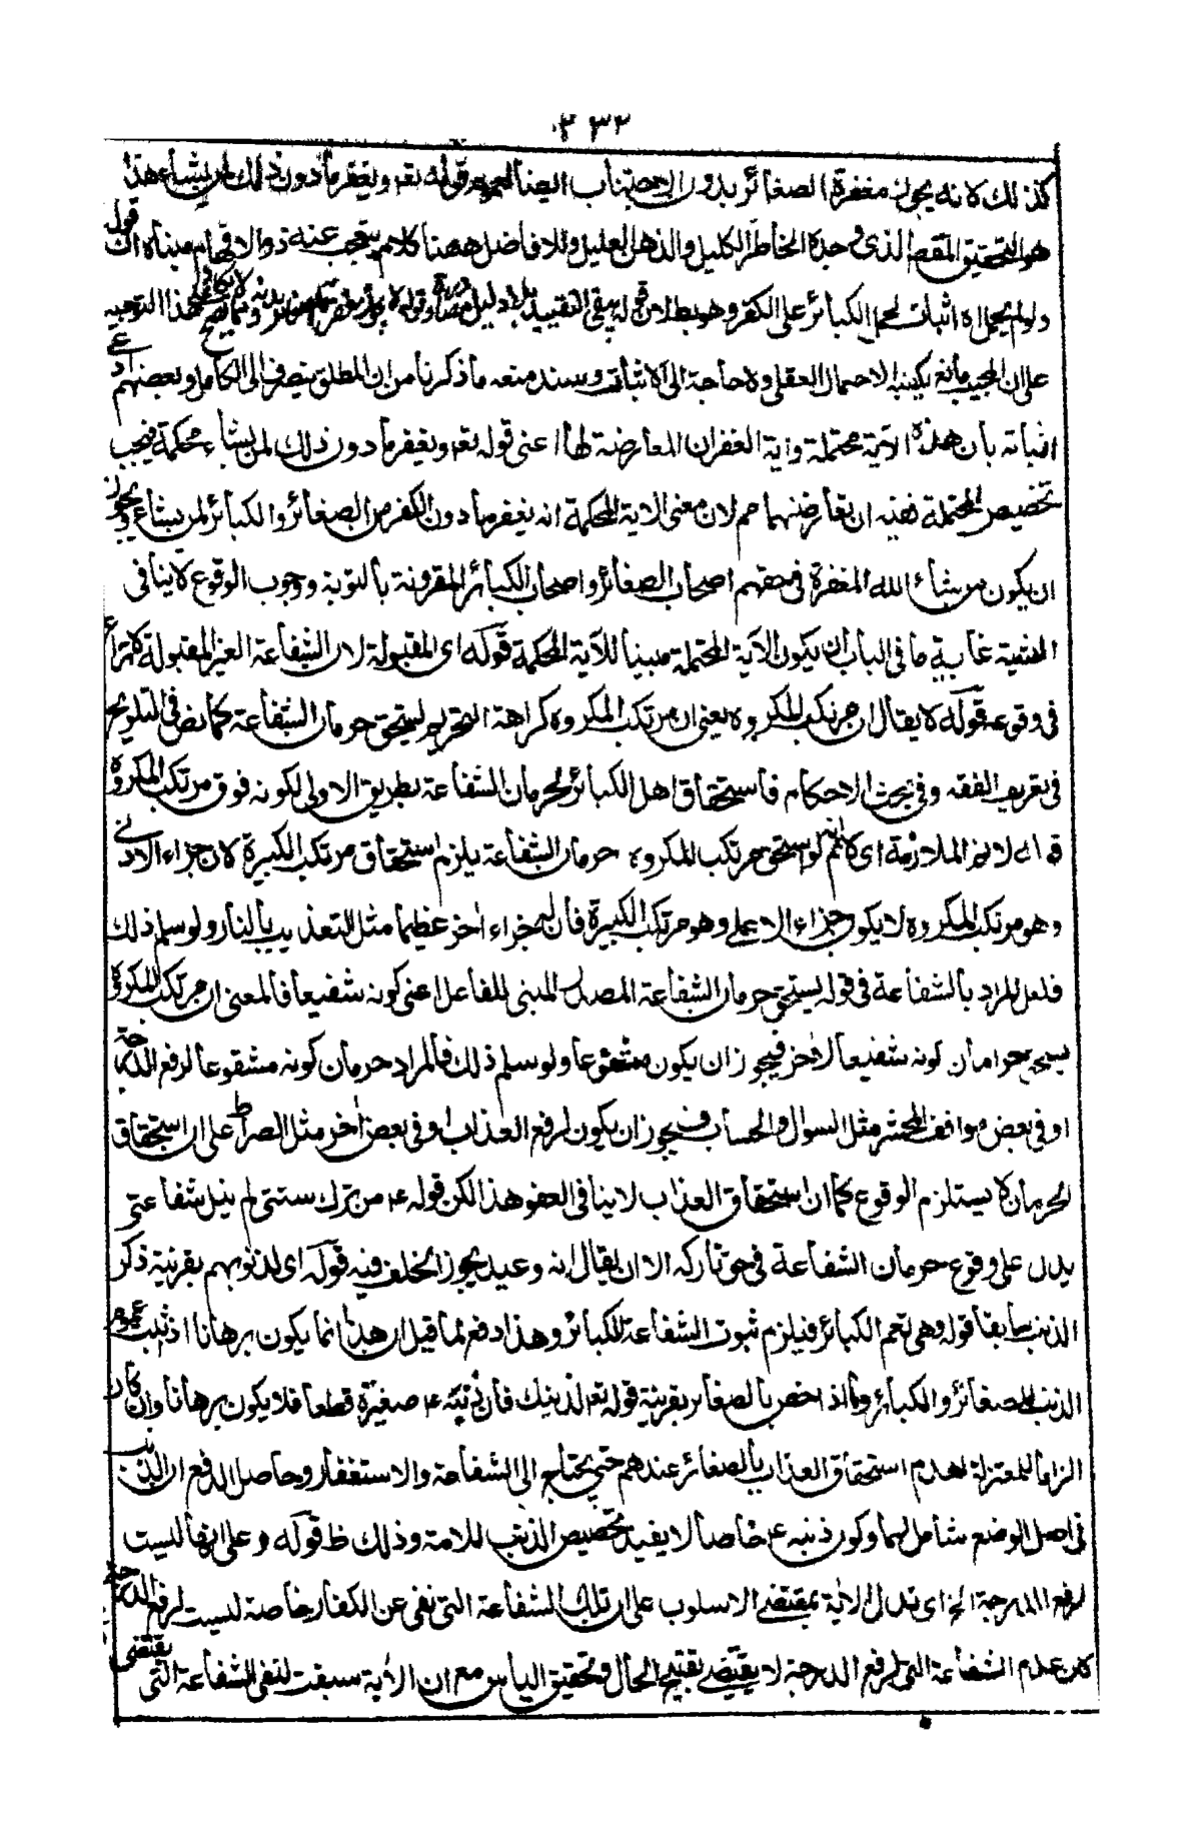 ٢٣٢
كذلك لانه يجوز مغفرة الصغائر بدون الاجتناب ايضا لعموم قوله تع ويغفر ما دون ذلك لمن يشاء هذا
هو التحقيق المقصد الذى وجده الخاطر الكليل والذهن العليل وللافاضل ههنا كلام يتعجب عنه ذوو الافهام مبناه ان قول
ولو لم يحمل اه اثبات لحمل الكبائر على الكفر وهو بطلان قوله يبقى التقييد بلا دليل هذا التوجيه
على ان المجيب مانع يكفيه الاحتمال العقلى ولا حاجة الى الاثبات وسند منعه ما ذكرنا من ان المطلق ينصرف الى الكامل وبعضهم ادعى
اثباته بان هذه الآية محتملة واية الغفران المعارضة لها اعنى قوله تع ويغفر ما دون ذلك لمن يشاء محكمة فيجب
تخصيص المحتملة ففيه ان تعارضهما مم لان معنى الاية المحكمة انه يغفر ما دون الكفر من الصغائر والكبائر لمن يشاء ويجوز
ان يكون من يشاء الله المغفرة فى حقهم اصحاب الصغائر واصحاب الكبائر المقرونة بالتوبة ووجوب الوقوع لا ينافى
المشية غاية ما فى الباب ان يكون الآية المحتملة مبينا للآية المحكمة قوله اى المقبولة لان الشفاعة الغير المقبولة لا نزاع
فى وقوعه قوله لا يقال ان مرتكب المكروه يعنى ان مرتكب المكروه كراهة التحريم يستحق حرمان الشفاعة كما نص فى التلويح
فى تعريف الفقه وفى بحث الاحكام فاستحقاق اهل الكبائر لحرمان الشفاعة بطريق الاولى لكونه فوق مرتكب المكروه
قوله لانه الملازمة اى لانم انه لو استحق مرتكب المكروه حرمان الشفاعة يلزم استحقاق مرتكب الكبيرة لان جزاء الادنى
وهو مرتكب المكروه لا يكون جزاء الاعلى وهو مرتكب الكبيرة فان له جزاء آخر عظيما مثل التعذيب بالنار ولو سلم ذلك
فلعل المراد بالشفاعة فى قوله يستحق حرمان الشفاعة المصدر المبنى للفاعل اعنى كونه شفيعا فالمعنى ان مرتكب المكروه
يستحق حرمان كونه شفيعا لآخر فيجوز ان يكون مشفوعا ولو سلم ذلك فالمراد حرمان كونه مشفوعا لرفع الدرجة
او فى بعض مواقف المحشر مثل السوال والحساب فيجوز ان يكون لرفع العذاب او فى بعض آخر مثل الصراط على ان استحقاق
الحرمان لا يستلزم الوقوع كما ان استحقاق العذاب لا ينافى العفو هذا لكن قوله ع م من ترك سنتى لم ينل شفاعتى
يدل على وقوع حرمان الشفاعة فى حق تاركه الا ان يقال انه وعيد يجوز الخلف فيه قوله اى لذنوبهم بقرينة ذكر
الذنب سابقا قوله وهى تعم الكبائر فيلزم ثبوت الشفاعة للكبائر وهذا دفع لما قيل ان هذا انما يكون برهانا اذا ثبت عموم
الذنب للصغائر والكبائر واما اذا خص بالصغائر بقرينة قوله تع لذنبك فان ذنبه ع م صغيرة قطعا فلا يكون برهانا وان كان
الزاما للمعتزلة لعدم استحقاق العذاب بالصغائر عندهم حتى يحتاج الى الشفاعة والاستغفار وحاصل الدفع ان الذنب
فى اصل الوضع شامل لهما وكون ذنبه ع م خاصا لا يفيد تخصيص الذنب للامة وذلك ظ قوله وعلى انها ليست
لرفع الدرجة الخ اى تدل الآية بمقتضى الاسلوب على ان تلك الشفاعة التى نفى عن الكفار خاصة ليست لرفع الدرجة
لان عدم الشفاعة التى لرفع الدرجة لا يقتضى تقبيح الحال وتحقيق اليأس مع ان الآية سيقت لنفى الشفاعة التى يقتضى